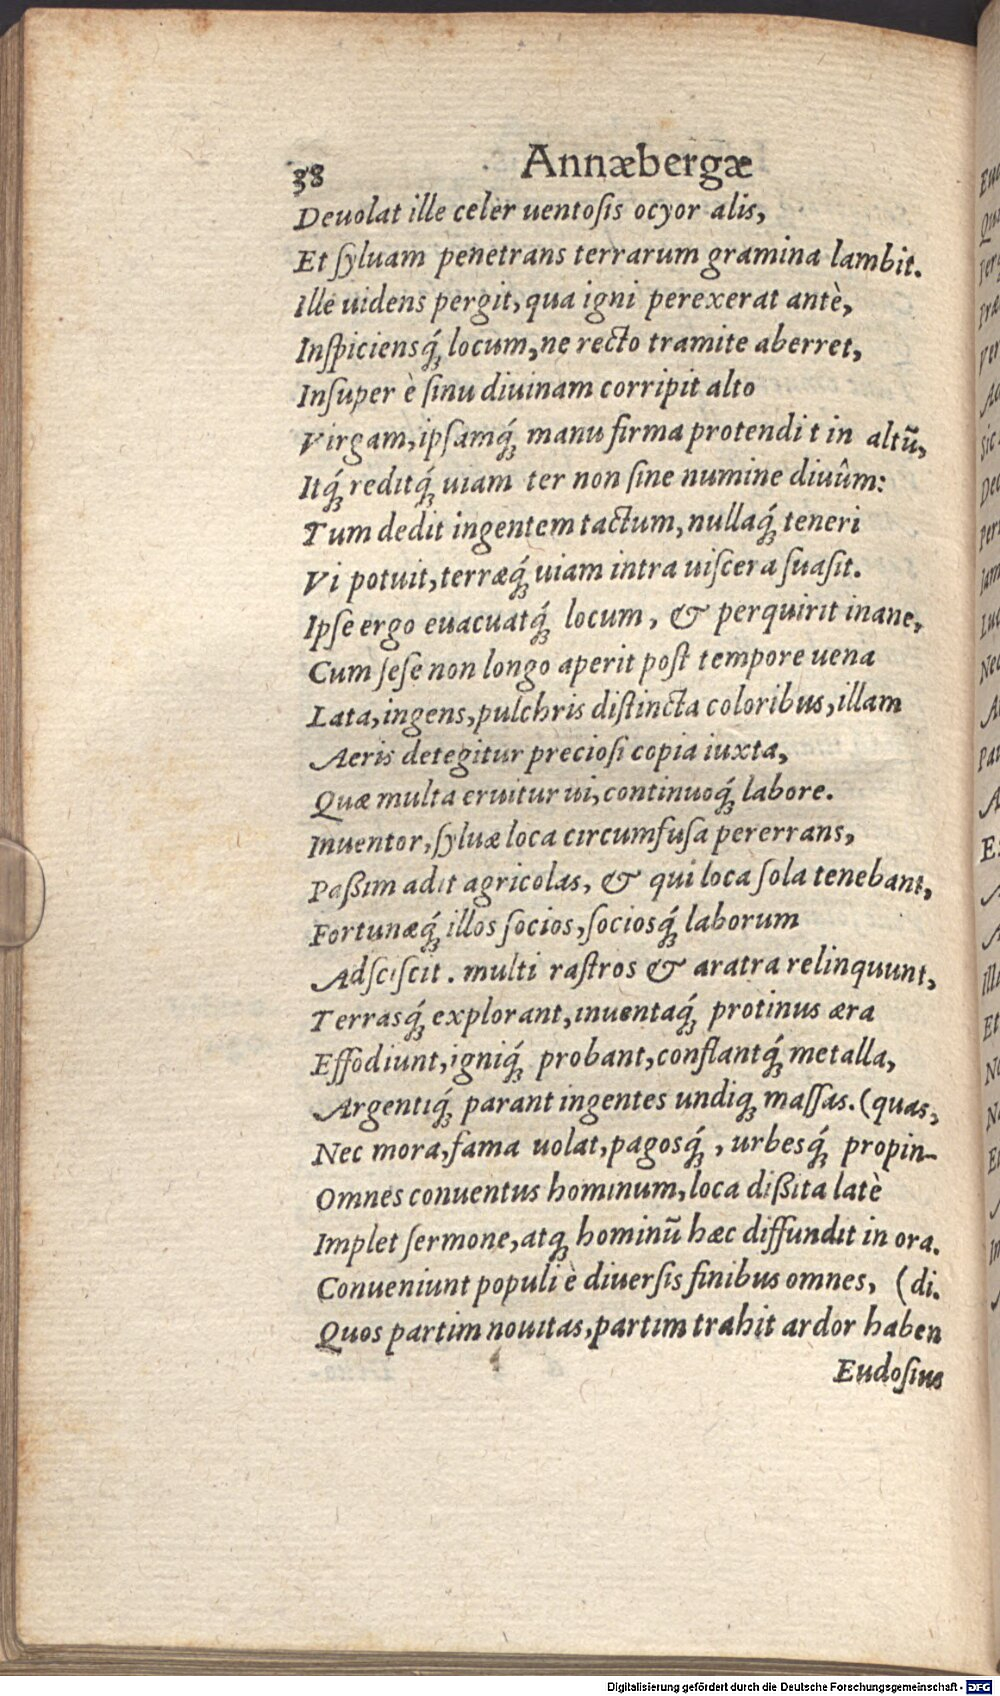 38 Annæbergæ
Deuolat ille celer uentosis ocyor alis,
Et syluam penetrans terrarum gramina lambit.
Ille uidens pergit, qua igni perexerat antè,
Inspiciensq́; locum, ne recto tramite aberret,
Insuper è sinu diuinam corripit alto
Virgam, ipsamq́; manu firma protendit in altū,
Itq́; reditq́; uiam ter non sine numine diuûm:
Tum dedit ingentem tactum, nullaq́; teneri
Vi potuit, terræq́; uiam intra uiscera suasit.
Ipse ergo euacuatq́; locum, & perquirit inane,
Cum sese non longo aperit post tempore uena
Lata, ingens, pulchris distincta coloribus, illam
Aeris detegitur preciosi copia iuxta,
Quæ multa eruitur ui, continuoq́; labore.
Inuentor, syluæ loca circumfusa pererrans,
Paßim adit agricolas, & qui loca sola tenebant,
Fortunæq́; illos socios, sociosq́; laborum
Adsciscit. multi rastros & aratra relinquunt,
Terrasq́; explorant, inuentaq́; protinus æra
Effodiunt, igniq́; probant, conflantq́; metalla,
Argentiq́; parant ingentes undiq; massas. (quas,
Nec mora, fama uolat, pagosq́;, urbesq́; propin-
Omnes conuentus hominum, loca dißita latè
Implet sermone, atq; hominū hæc diffundit in ora.
Conueniunt populi è diuersis finibus omnes, (di.
Quos partim nouitas, partim trahit ardor haben
Eudosius
Digitalisierung gefördert durch die Deutsche Forschungsgemeinschaft - DFG